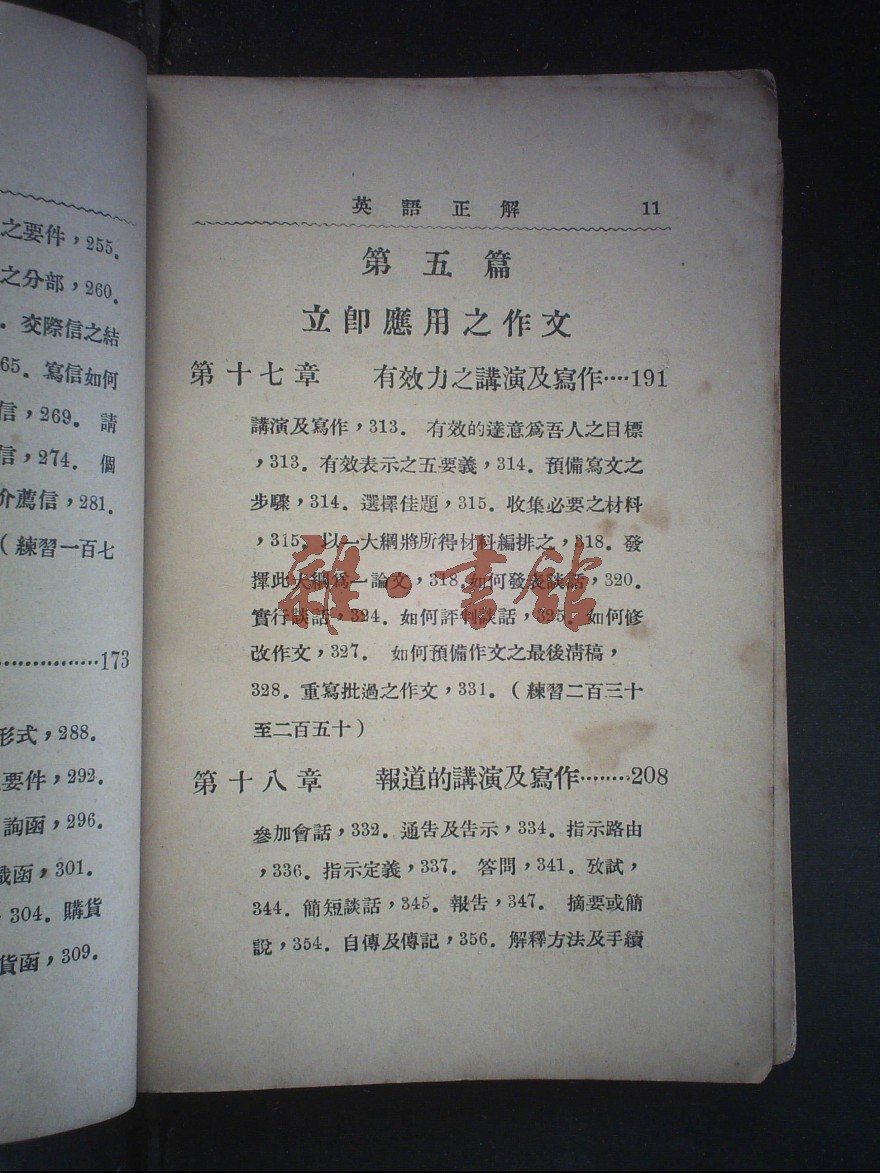 之要件，255.
之分部，260.
. 交際信之結
65. 寫信如何
信，269. 請
信，274. 個
介薦信，281.
（練習一百七
173
形式，288.
要件，292.
詢函，296.
函，301.
304. 購貨
貨函，309.
英語正解 11
第五篇
立卽應用之作文
第十七章 有效力之講演及寫作····191
講演及寫作，313. 有效的達意爲吾人之目標
，313. 有效表示之五要義，314. 預備寫文之
步驟，314. 選擇佳題，315. 收集必要之材料
，315. 以一大綱將所得材料編排之，318. 發
揮此大綱爲一論文，318. 如何發表談話，320.
實行談話，324. 如何評判談話，325. 如何修
改作文，327. 如何預備作文之最後淸稿，
328. 重寫批過之作文，331.（練習二百三十
至二百五十）
第十八章 報道的講演及寫作········208
參加會話，332. 通告及告示，334. 指示路由
，336. 指示定義，337. 答問，341. 攷試，
344. 簡短談話，345. 報告，347. 摘要或簡
說，354. 自傳及傳記，356. 解釋方法及手續
雜·書館